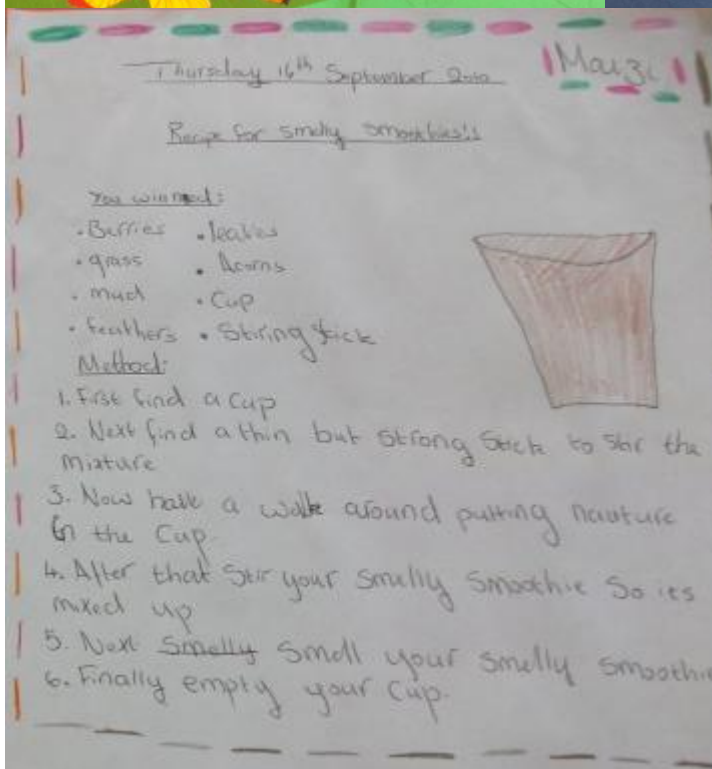 Thursday 16th September
Recipe for smelly smoothies's
You will need:
. Berries . leaves
. grass . Acorns
. mud . Cup
. feathers . Stiring stick
Method:
1. First find a cup
2. Next find a thin but strong stick to stir the
mixture
3. Now have a walk around putting nauture
in the Cup
4. After that Stir your smelly smoothie So its
mixed up
5. Next Smelly smell your smelly smoothie
6. Finally empty your Cup.